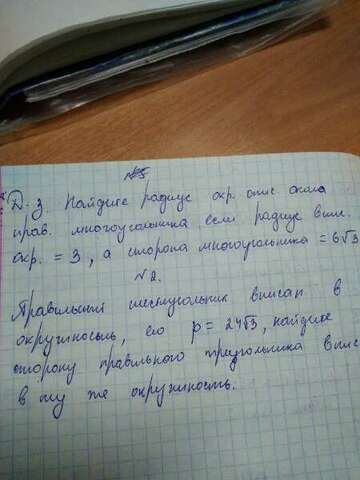 №5
Д-з. Найдите радиус окр. опис около
прав. многоугольника если радиус впис.
окр. = 3, а сторона многоугольника = 6√3
№2.
Правильный шестиугольник вписан в
окружность, его p = 24√3, найдите
сторону правильного треугольника впис
в ту же окружность.